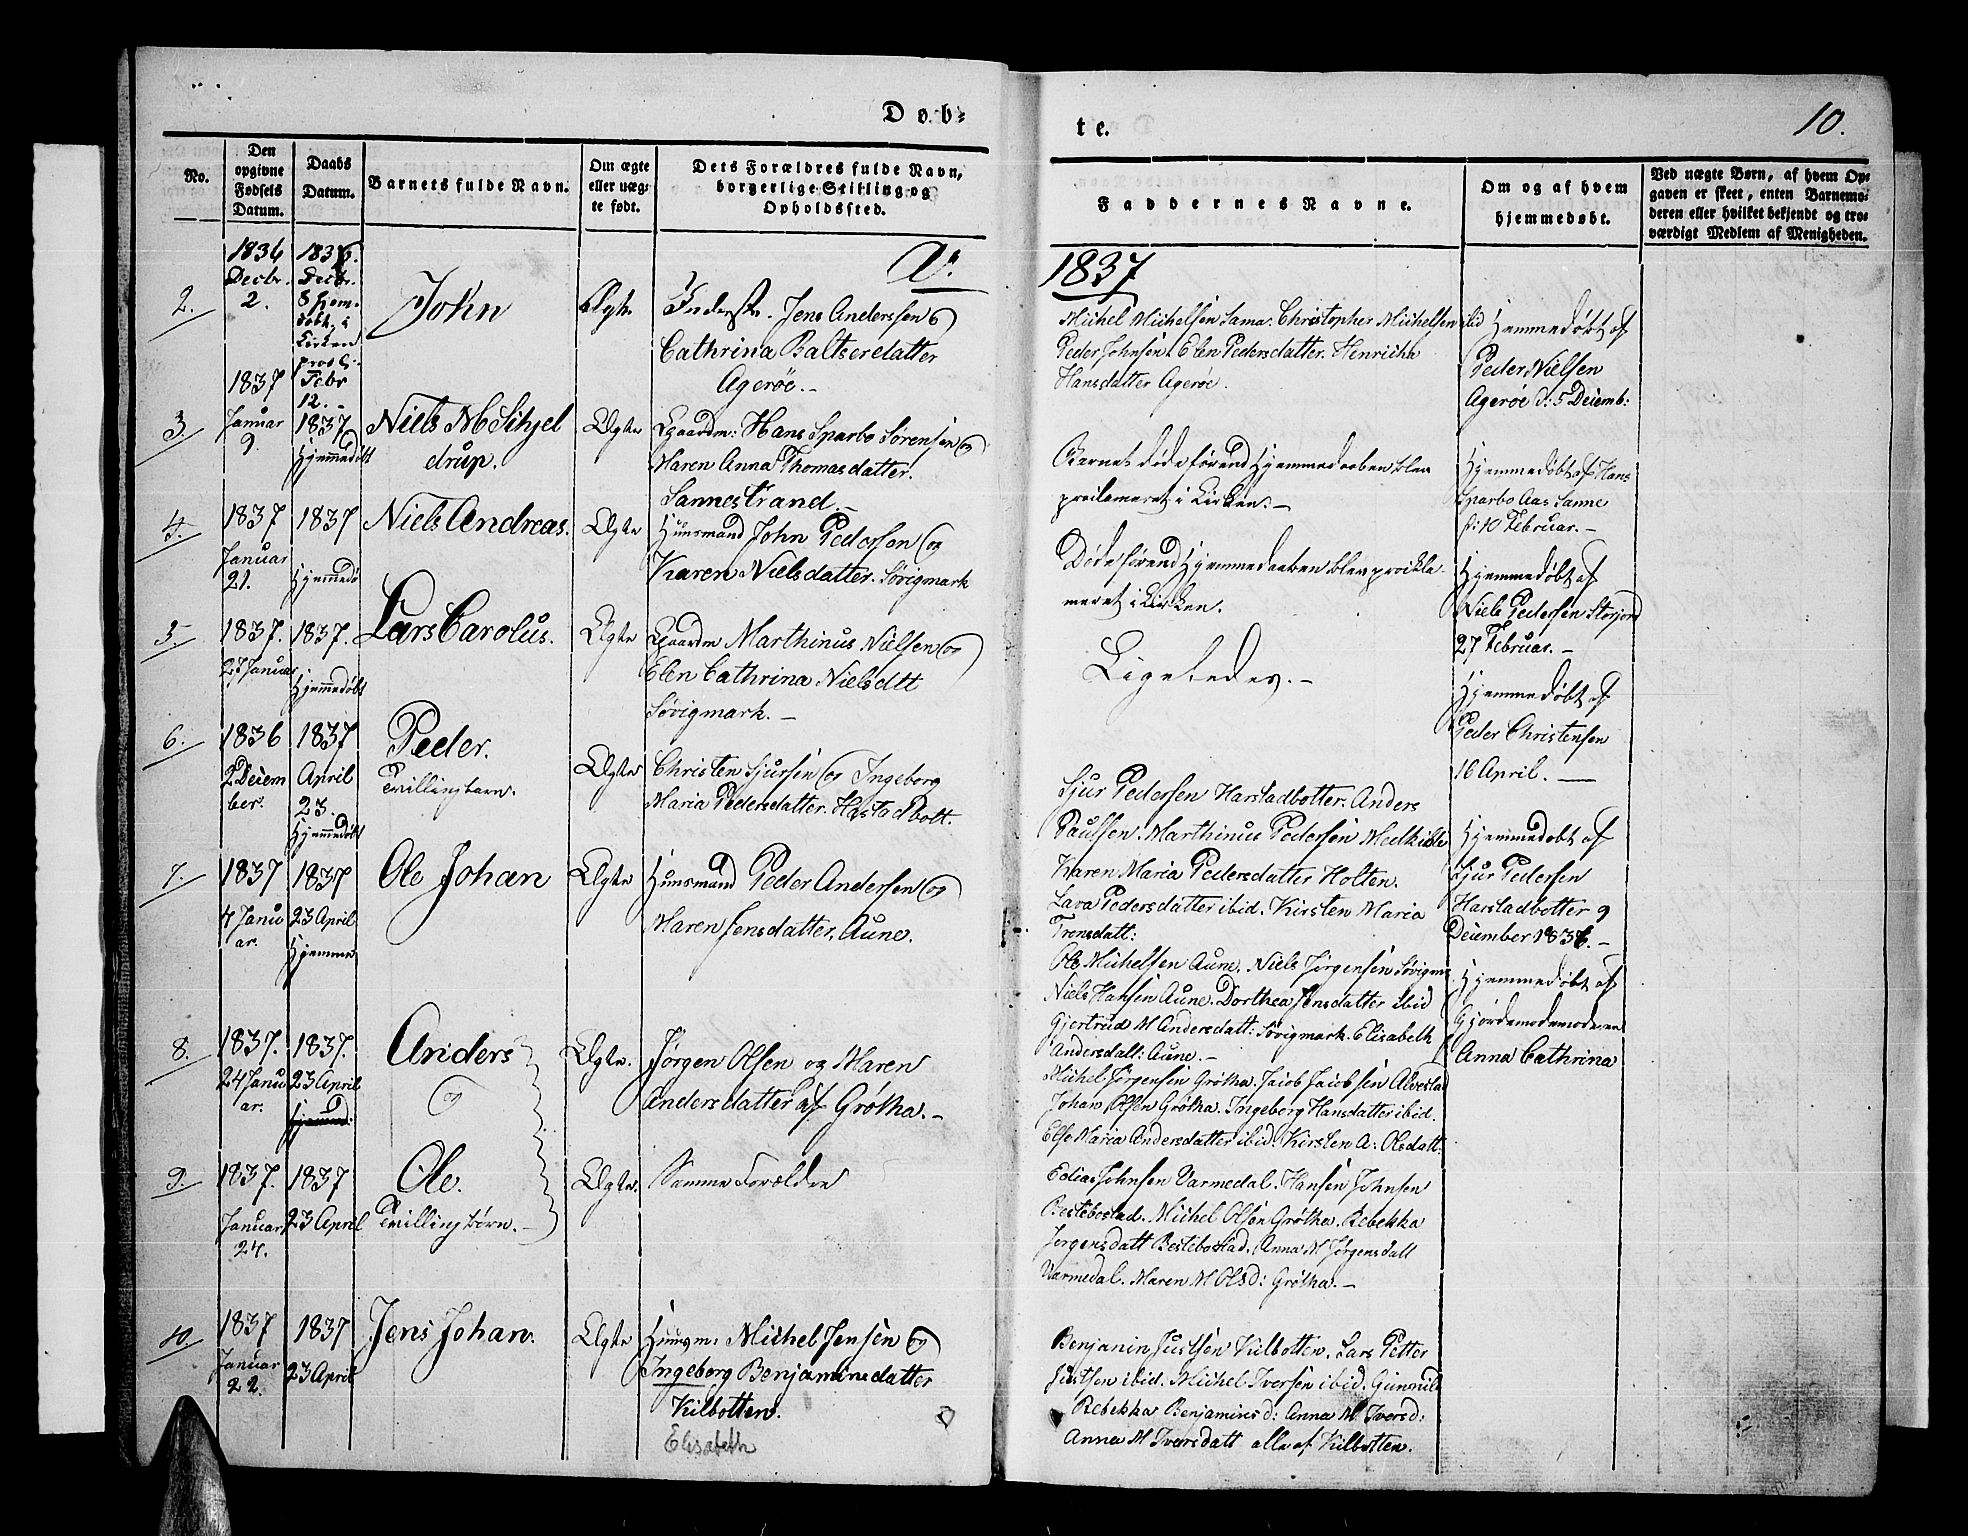 Døb-
te.
10.
No.
Den
opgivne
Fødsels
Datum.
Daabs
Datum.
Barnets fulde Navn.
Om ægte
eller uæg-
te født.
Dets Forældres fulde Navn,
borgerlige Stilling og
Opholdssted.
Faddernes Navne.
Om og af hvem
hjemmedøbt.
Ved uægte Børn, af hvem Op-
gaven er skeet, enten Barnemo-
deren eller hvilket bekjendt og tro-
værdigt Medlem af Menigheden.
Ao.
1837
2.
1836
Decbr.
2.
1836.
Decbr.
8 hjem-
døbt, i
Kirken
Febr
12.
John
Ægte
Jens Anderssen og
Cathrina Baltserdatter
Agerøe.
Michel Michelsen Sama. Christopher Michelsen ibid
Peder Johnsen. Elen Pedersdatter. Henricha
Hansdatter Agerøe.
Hjemmedøbt af
Peder Nielsen
Agerøe d: 5 Decemb:
3.
1837
Januar
9.
1837
Hjemmedøbt
Niels M Schjel
drup.
Ægte
Gaardm: Hans Sparbo Sørensen og
Maren Anna Thomasdatter.
Sannestrand.
Barnet døde førend Hjemmedaaben blev
proclameret i Kirken.
Hjemmedøbt af Hans
Sparbo Aas Sanne
d: 10 Februar.
4.
1837
Januar
21.
1837
Hjemmedø
Niels Andreas.
Ægte
Huusmand John Pedersen og
Karen Nielsdatter. Søvigmark
Døde førend Hjemmedaaben blev prockla-
meret i Kirken.
Hjemmedøbt af
Niels Pedersen Storjord
27 Februar.
5.
1837.
27 Januar
1837.
Hjemmedøbt
Lars Carolus.
Ægte
Gaardm Marthinus Nielsen og
Elen Cathrina Nielsdtt
Søvigmark.
Ligeledes.
Hjemmedøbt af
Peder Christensen
16 April.
6.
1836
2 Decem
ber.
1837
April
23.
Hjemmedøbt
Peder.
Tvillingbarn.
Ægte
Christen Sjursen og Ingeborg
Maria Pedersdatter. Hastadbott.
Sjur Pedersen Harstadbotter. Anders
Paulsen. Marthinus Pedersen
Karen Maria Pedersdatter Holten.
Lava Pedersdatter ibid. Kirsten Maria
Trensdatt:
Hjemmedøbt af
Sjur Pedersen
Harstadbotter 9
December 1836.
7.
1837
4 Janu
ar.
1837
23 April
Hjemme
Ole Johan
Ægte
Huusmand Peder Andersen og
Maren Jensdatter. Aune.
Ole Michelsen Aune. Niels Jørgensen Søvigm
Niels Hansen Aune. Dorthea Jensdatter ibid
Gjertrud M Andersdatt: Søvigmark. Elisabeth
Andersdatt: Aune.
Hjemmedøbt af
Anna Cathrina
8.
1837.
24 Janu
ar.
1837.
23 April
Hjemmd:
Anders
og
Ægte.
Jørgen Olsen og Maren
Andersdatter af Grøtha.
Michel Jørgensen Grøtha. Jacob Jacobsen Alvestad
Johan Olsen Grøtha. Ingeborg Hansdatter ibid.
Else Maria Andersdatter ibid. Kirsten A: Olsdatt:
9.
1837.
Januar
24.
1837
23 April
Ole.
Tvillingbørn.
Ægte.
Samme Forældre
Johnsen Varmedal. Hansen Johnsen
Bestebostad. Michel Olsen Grøtha. Rebekka
Jørgensdatt Bestebostad. Anna M Jørgensdatt
Varmedal. Maren M Olsd: Grøtha.
10.
1837
Januar
22.
1837
23 April
Jens Johan.
Ægte
Huusm: Michel Jensen og
Ingeborg Benjaminsdatter
Kilbotten.
Elisabeth
Benjamin Justsen Kilbotten. Lars Petter
Justsen ibid. Michel Iversen ibid. Gunnild
Rebekka Benjaminsd: Anna M Iversd:
Anna M Iversdatt alle af Kilbotten.